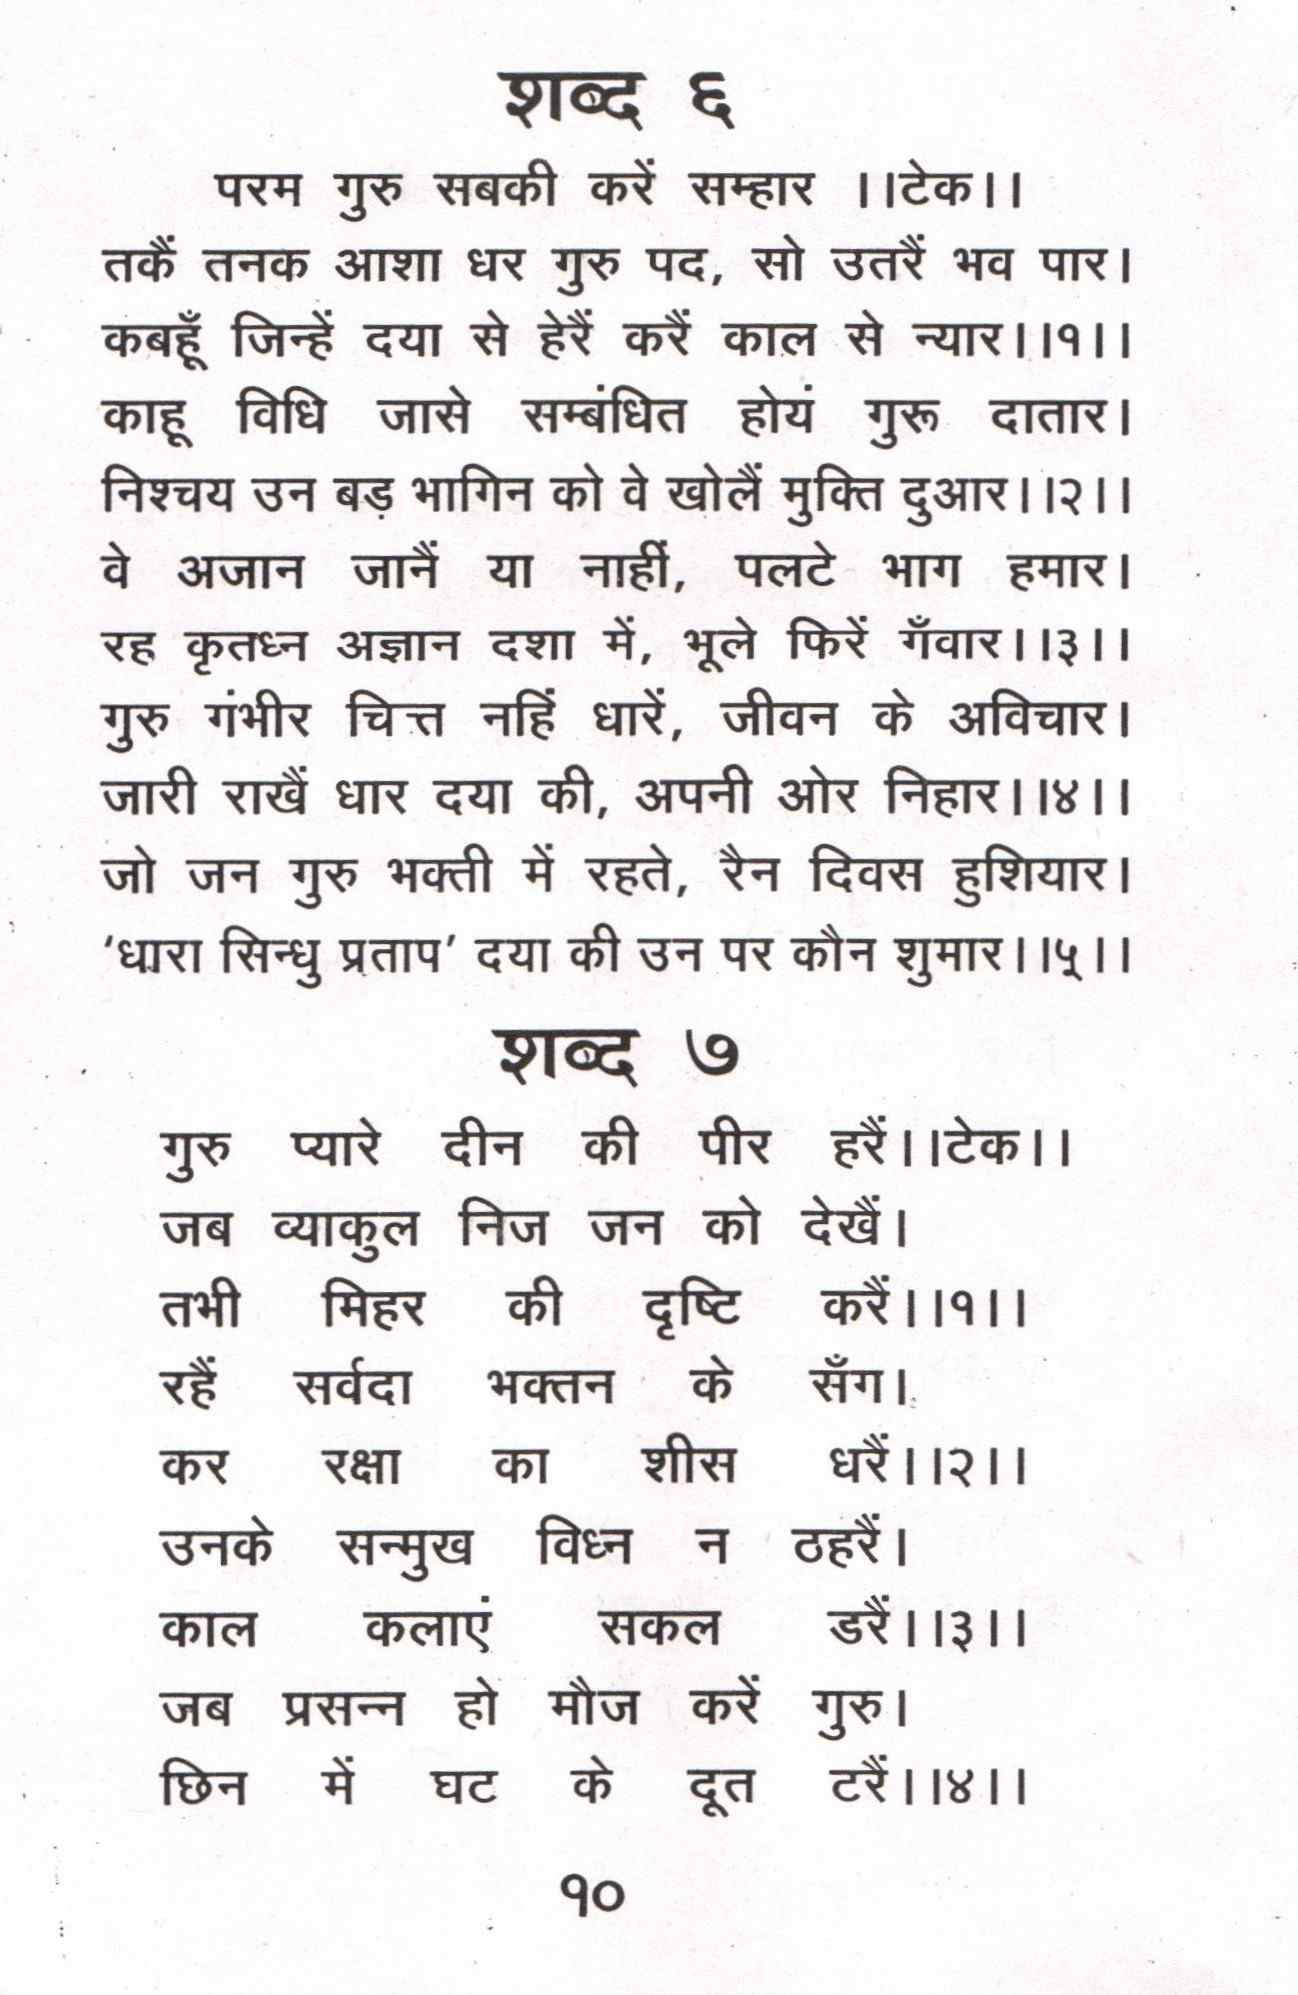 शब्द ६
परम गुरु सबकी करें सम्हार ।।टेक।।
तकैं तनक आशा धर गुरु पद, सो उतरैं भव पार।
कबहूँ जिन्हें दया से हेरैं करैं काल से न्यार।।१।।
काहू विधि जासे सम्बंधित होयं गुरू दातार।
निश्चय उन बड़ भागिन को वे खोलैं मुक्ति दुआर।।२।।
वे अजान जानैं या नाहीं, पलटे भाग हमार।
रह कृतध्न अज्ञान दशा में, भूले फिरें गँवार।।३।।
गुरु गंभीर चित्त नहिं धारें, जीवन के अविचार।
जारी राखैं धार दया की, अपनी ओर निहार।।४।।
जो जन गुरु भक्ती में रहते, रैन दिवस हुशियार।
‘धारा सिन्धु प्रताप’ दया की उन पर कौन शुमार।।५।।
शब्द ७
गुरु प्यारे दीन की पीर हरैं।।टेक।।
जब व्याकुल निज जन को देखैं।
तभी मिहर की दृष्टि करैं।।१।।
रहैं सर्वदा भक्तन के सँग।
कर रक्षा का शीस धरैं।।२।।
उनके सन्मुख विध्न न ठहरैं।
काल कलाएं सकल डरैं।।३।।
जब प्रसन्न हो मौज करें गुरु।
छिन में घट के दूत टरैं।।४।।
१०